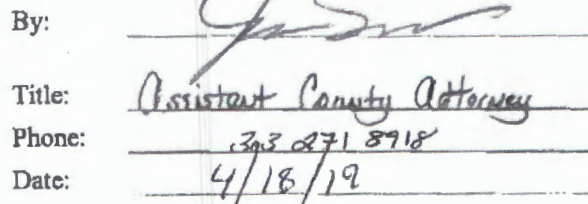 By:
Title: Assistant County Attorney
Phone: 303 271 8918
Date: 4/18/19